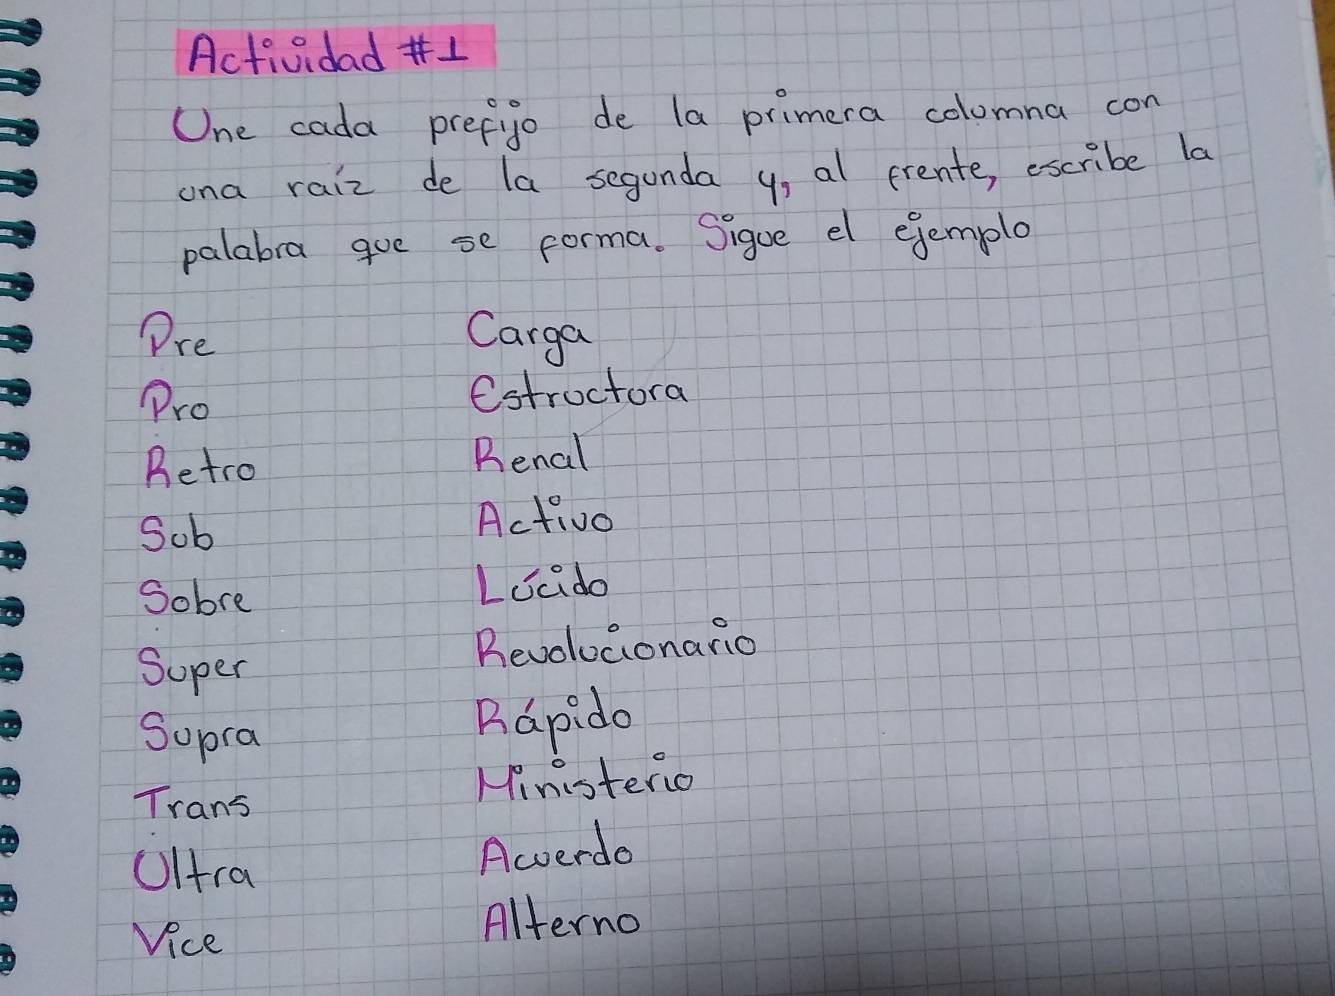 Actividad #1
Une cada prefijo de la primera columna con
una raíz de la segunda y, al frente, escribe la
palabra que se forma. Sigue el ejemplo
Pre Carga
Pro Estructura
Retro Renal
Sub Activo
Sobre Lúcido
Super Revolucionario
Supra Rápido
Trans Ministerio
Ultra Acuerdo
Vice Alterno